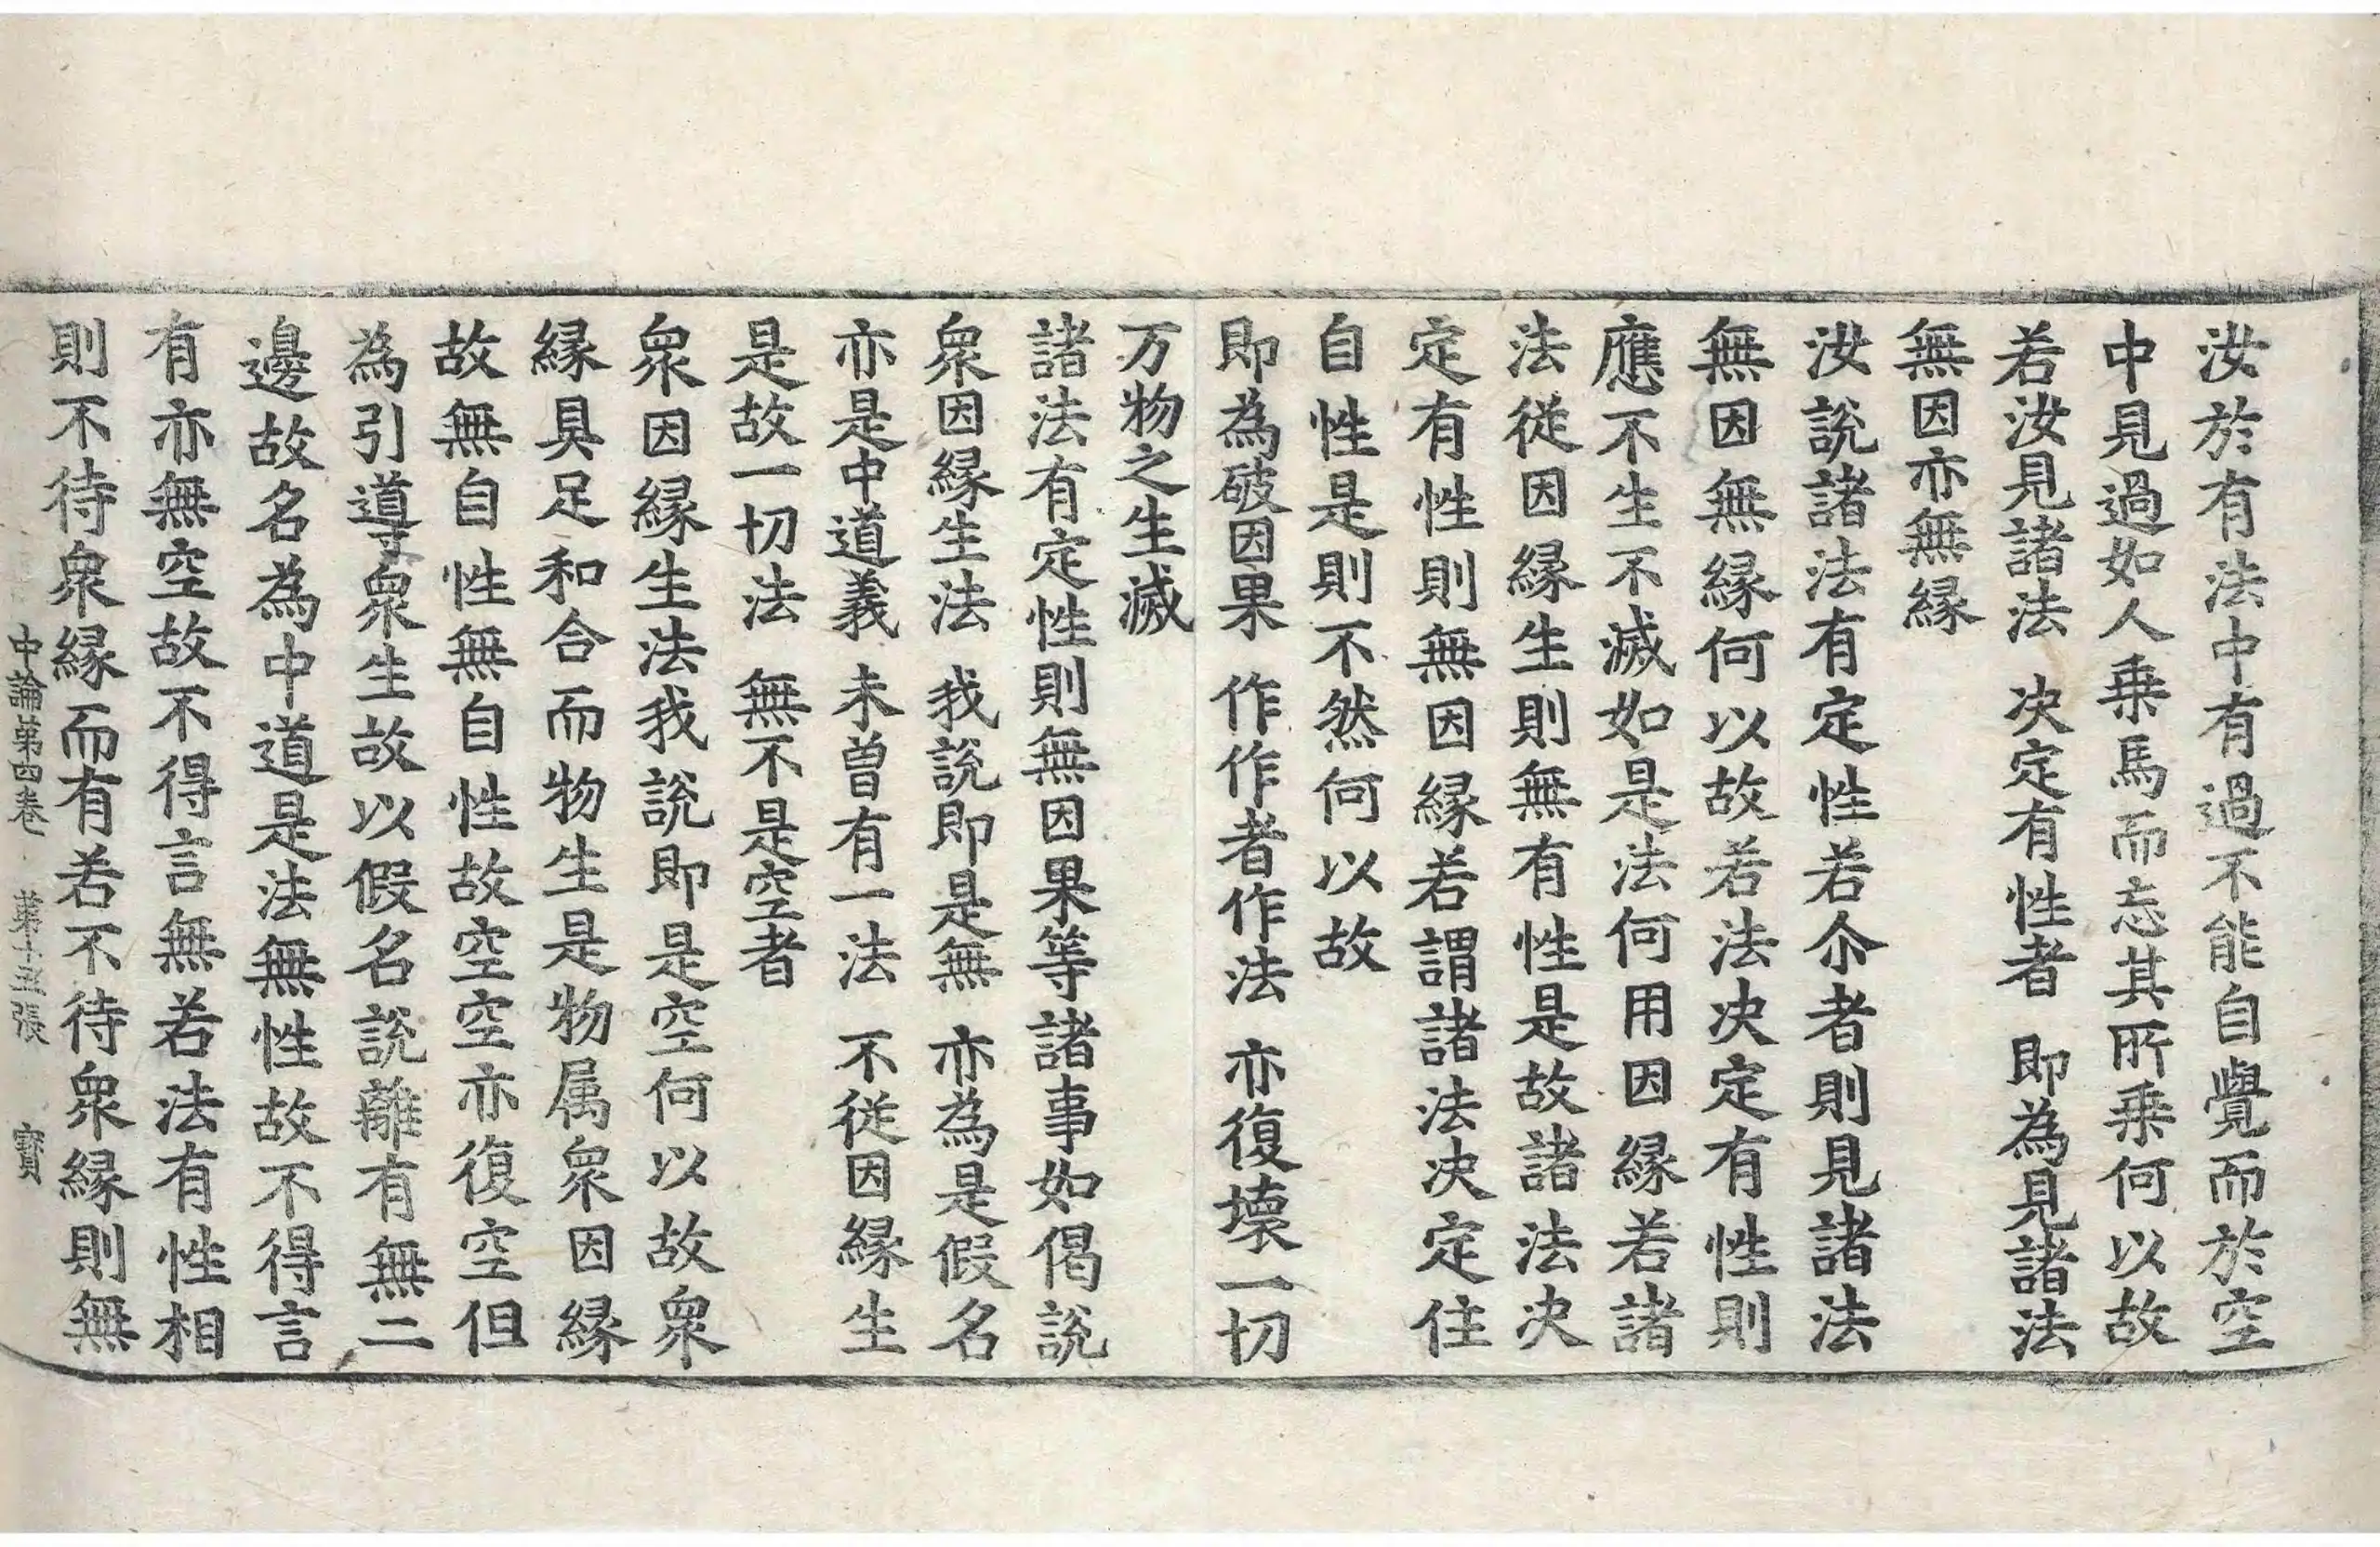 汝於有法中有過不能自覺而於空
中見過如人乗馬而忘其所乗何以故
若汝見諸法　决定有性者　即為見諸法
無因亦無縁
汝說諸法有定性若尒者則見諸法
無因無縁何以故若法决定有性則
應不生不滅如是法何用因縁若諸
法從因縁生則無有性是故諸法决
定有性則無因縁若謂諸法决定住
自性是則不然何以故
即為破因果　作作者作法　亦復壞一切
万物之生滅
諸法有定性則無因果等諸事如偈說
衆因縁生法　我說即是無　亦為是假名
亦是中道義　未曾有一法　不従因縁生
是故一切法　無不是空者
衆因縁生法我說即是空何以故衆
縁具足和合而物生是物属衆因縁
故無自性無自性故空空亦復空但
為引導衆生故以假名說離有無二
邊故名為中道是法無性故不得言
有亦無空故不得言無若法有性相
則不待衆縁而有若不待衆縁則無
中論第四卷　第十五張　寳